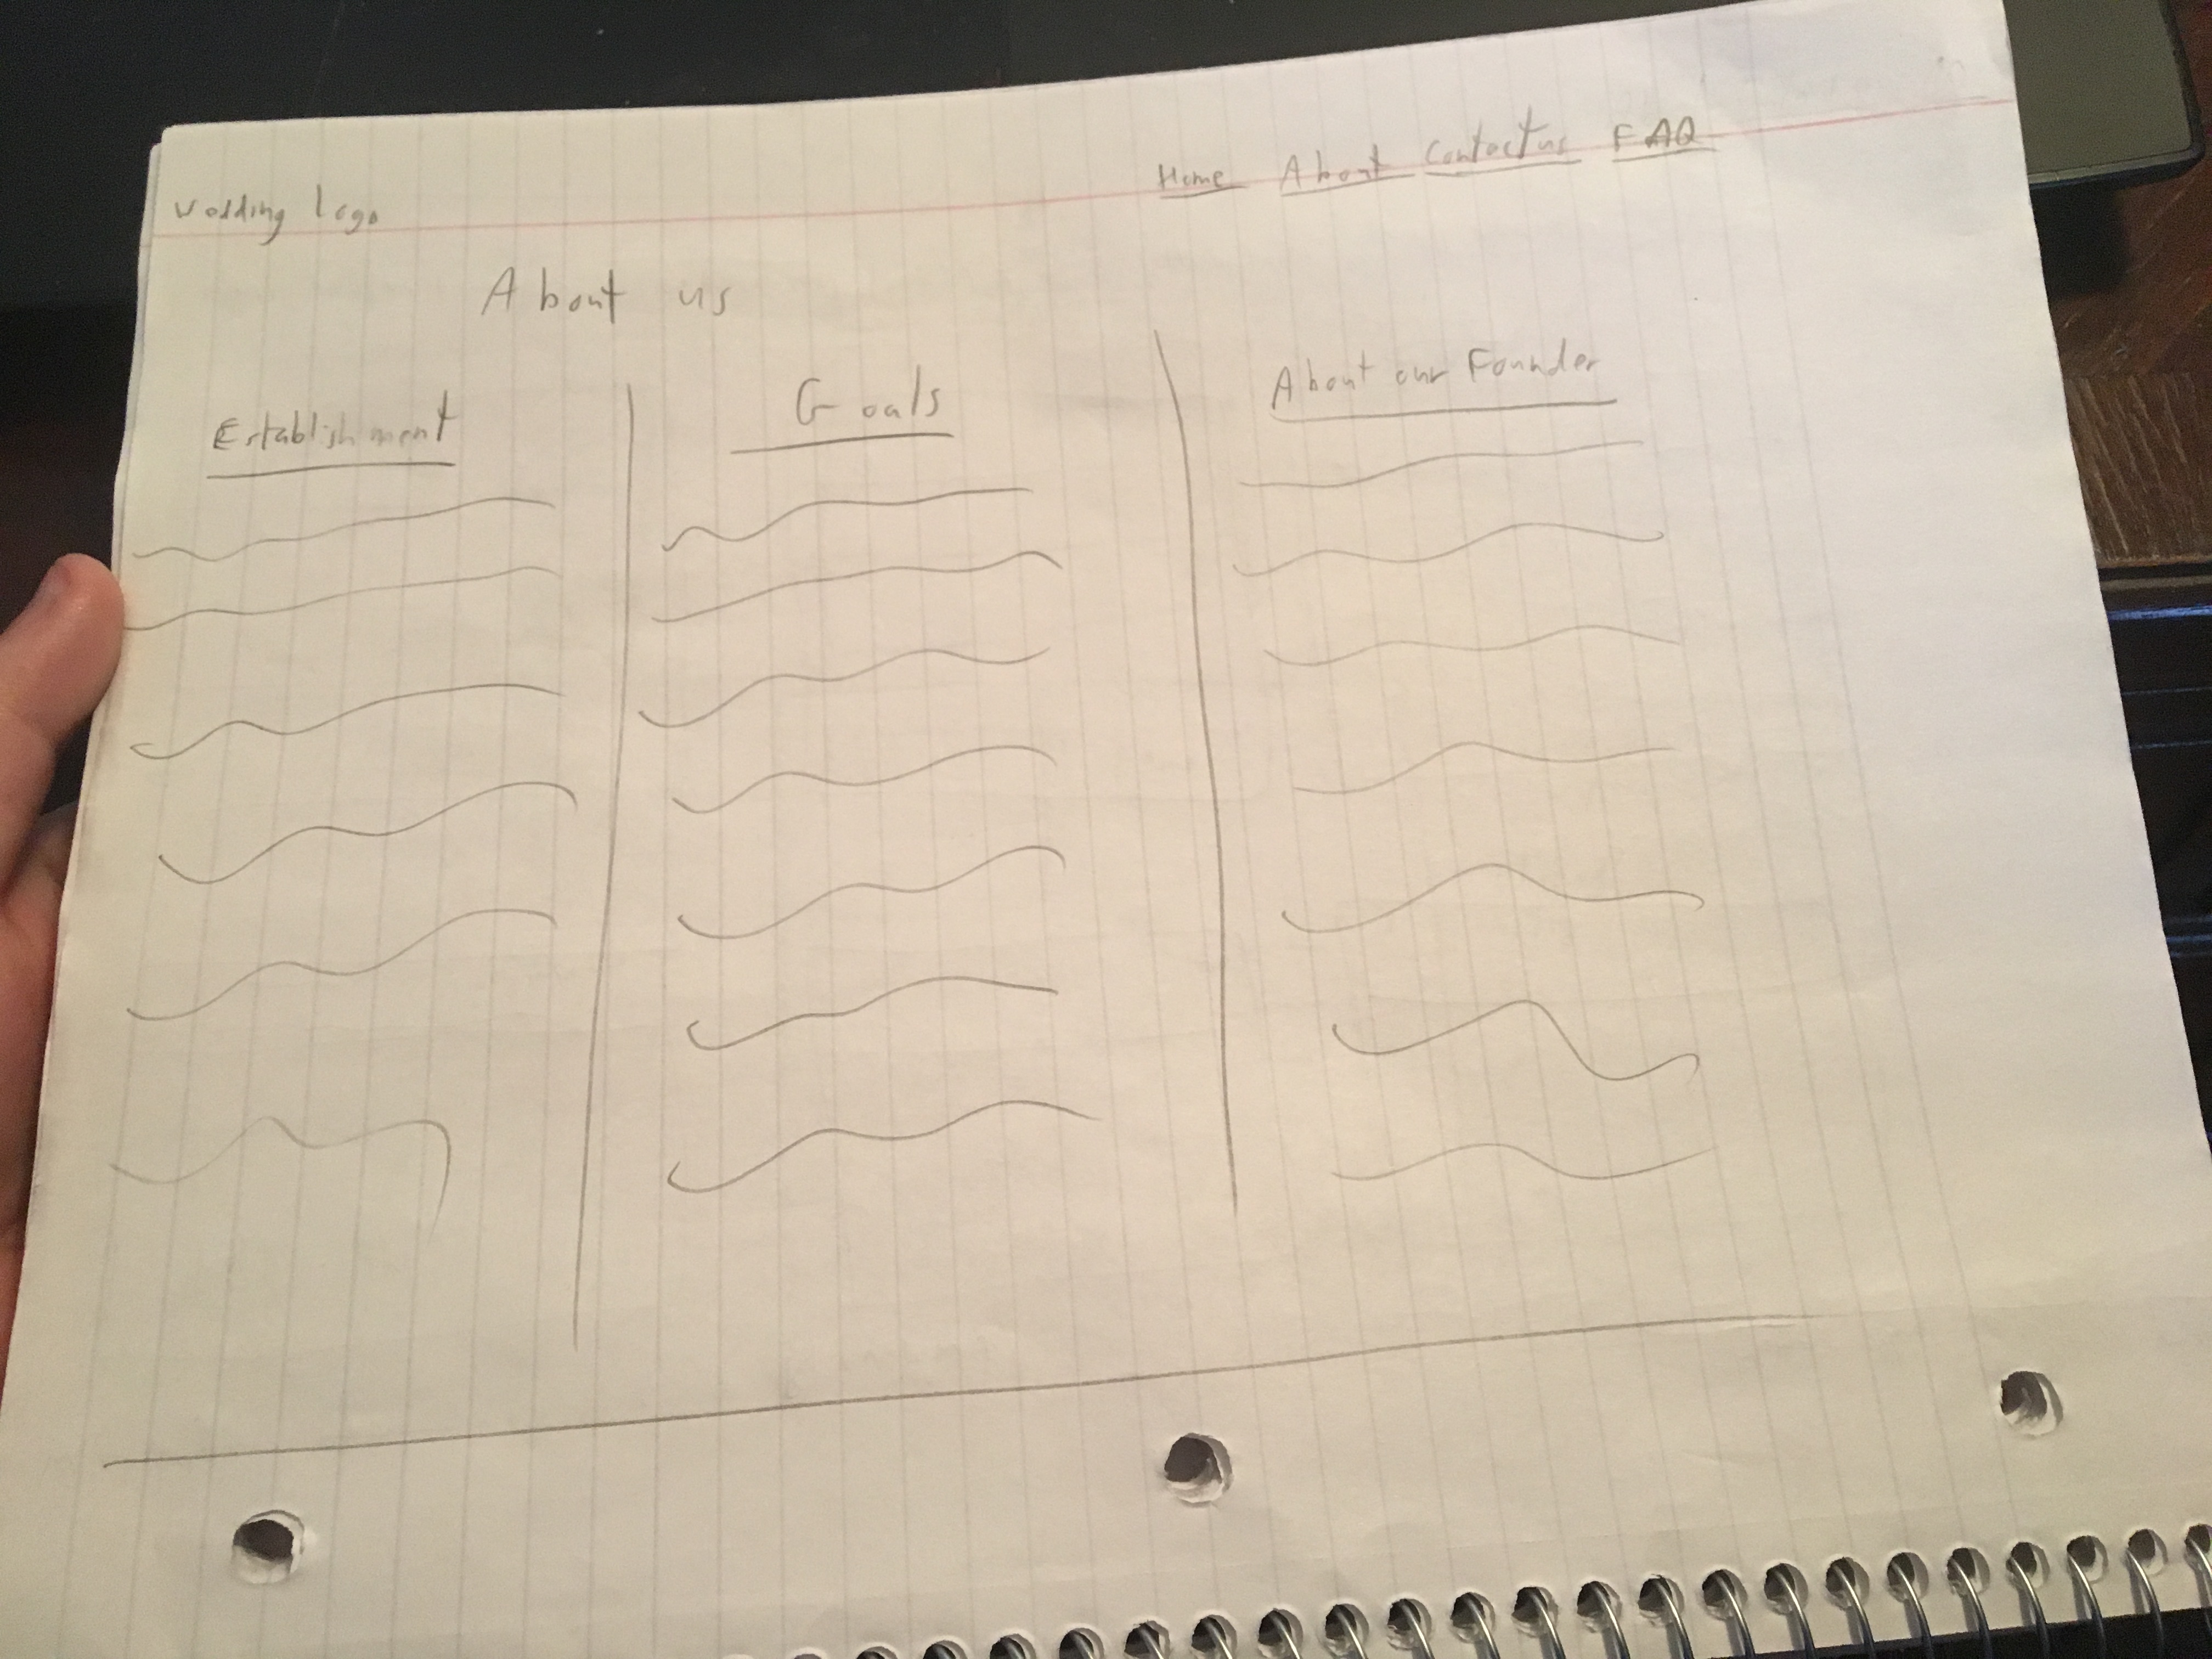 Wedding Logo
Home About Contact us FAQ
About us
Establishment
Goals
About our Founder